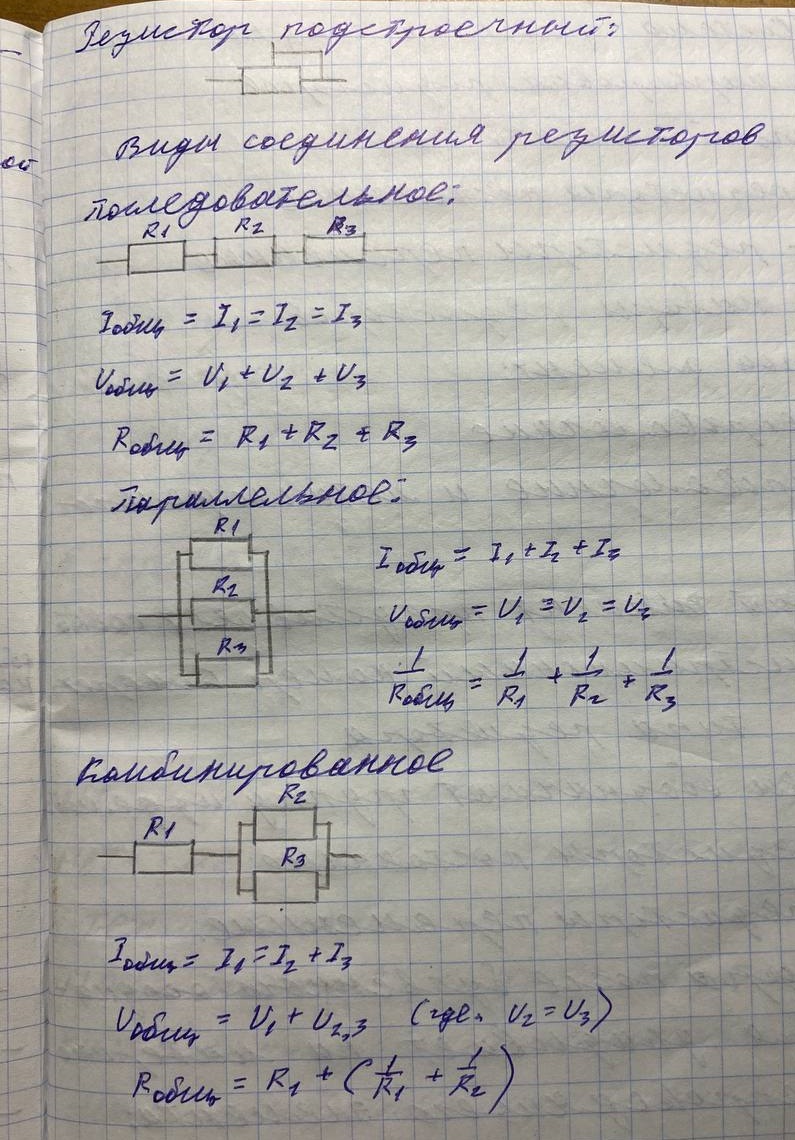 Резистор подстроечный:
Виды соединения резисторов
Последовательное:
R1 R2 R3
Iобщ = I1 = I2 = I3
Uобщ = U1 + U2 + U3
Rобщ = R1 + R2 + R3
Параллельное:
R1
R2
R3
Iобщ = I1 + I2 + I3
Uобщ = U1 = U2 = U3
1/Rобщ = 1/R1 + 1/R2 + 1/R3
Комбинированное
R1
R2
R3
Iобщ = I1 = I2 + I3
Uобщ = U1 + U2,3 (где. U2 = U3)
Rобщ = R1 + (1/R1 + 1/R2)